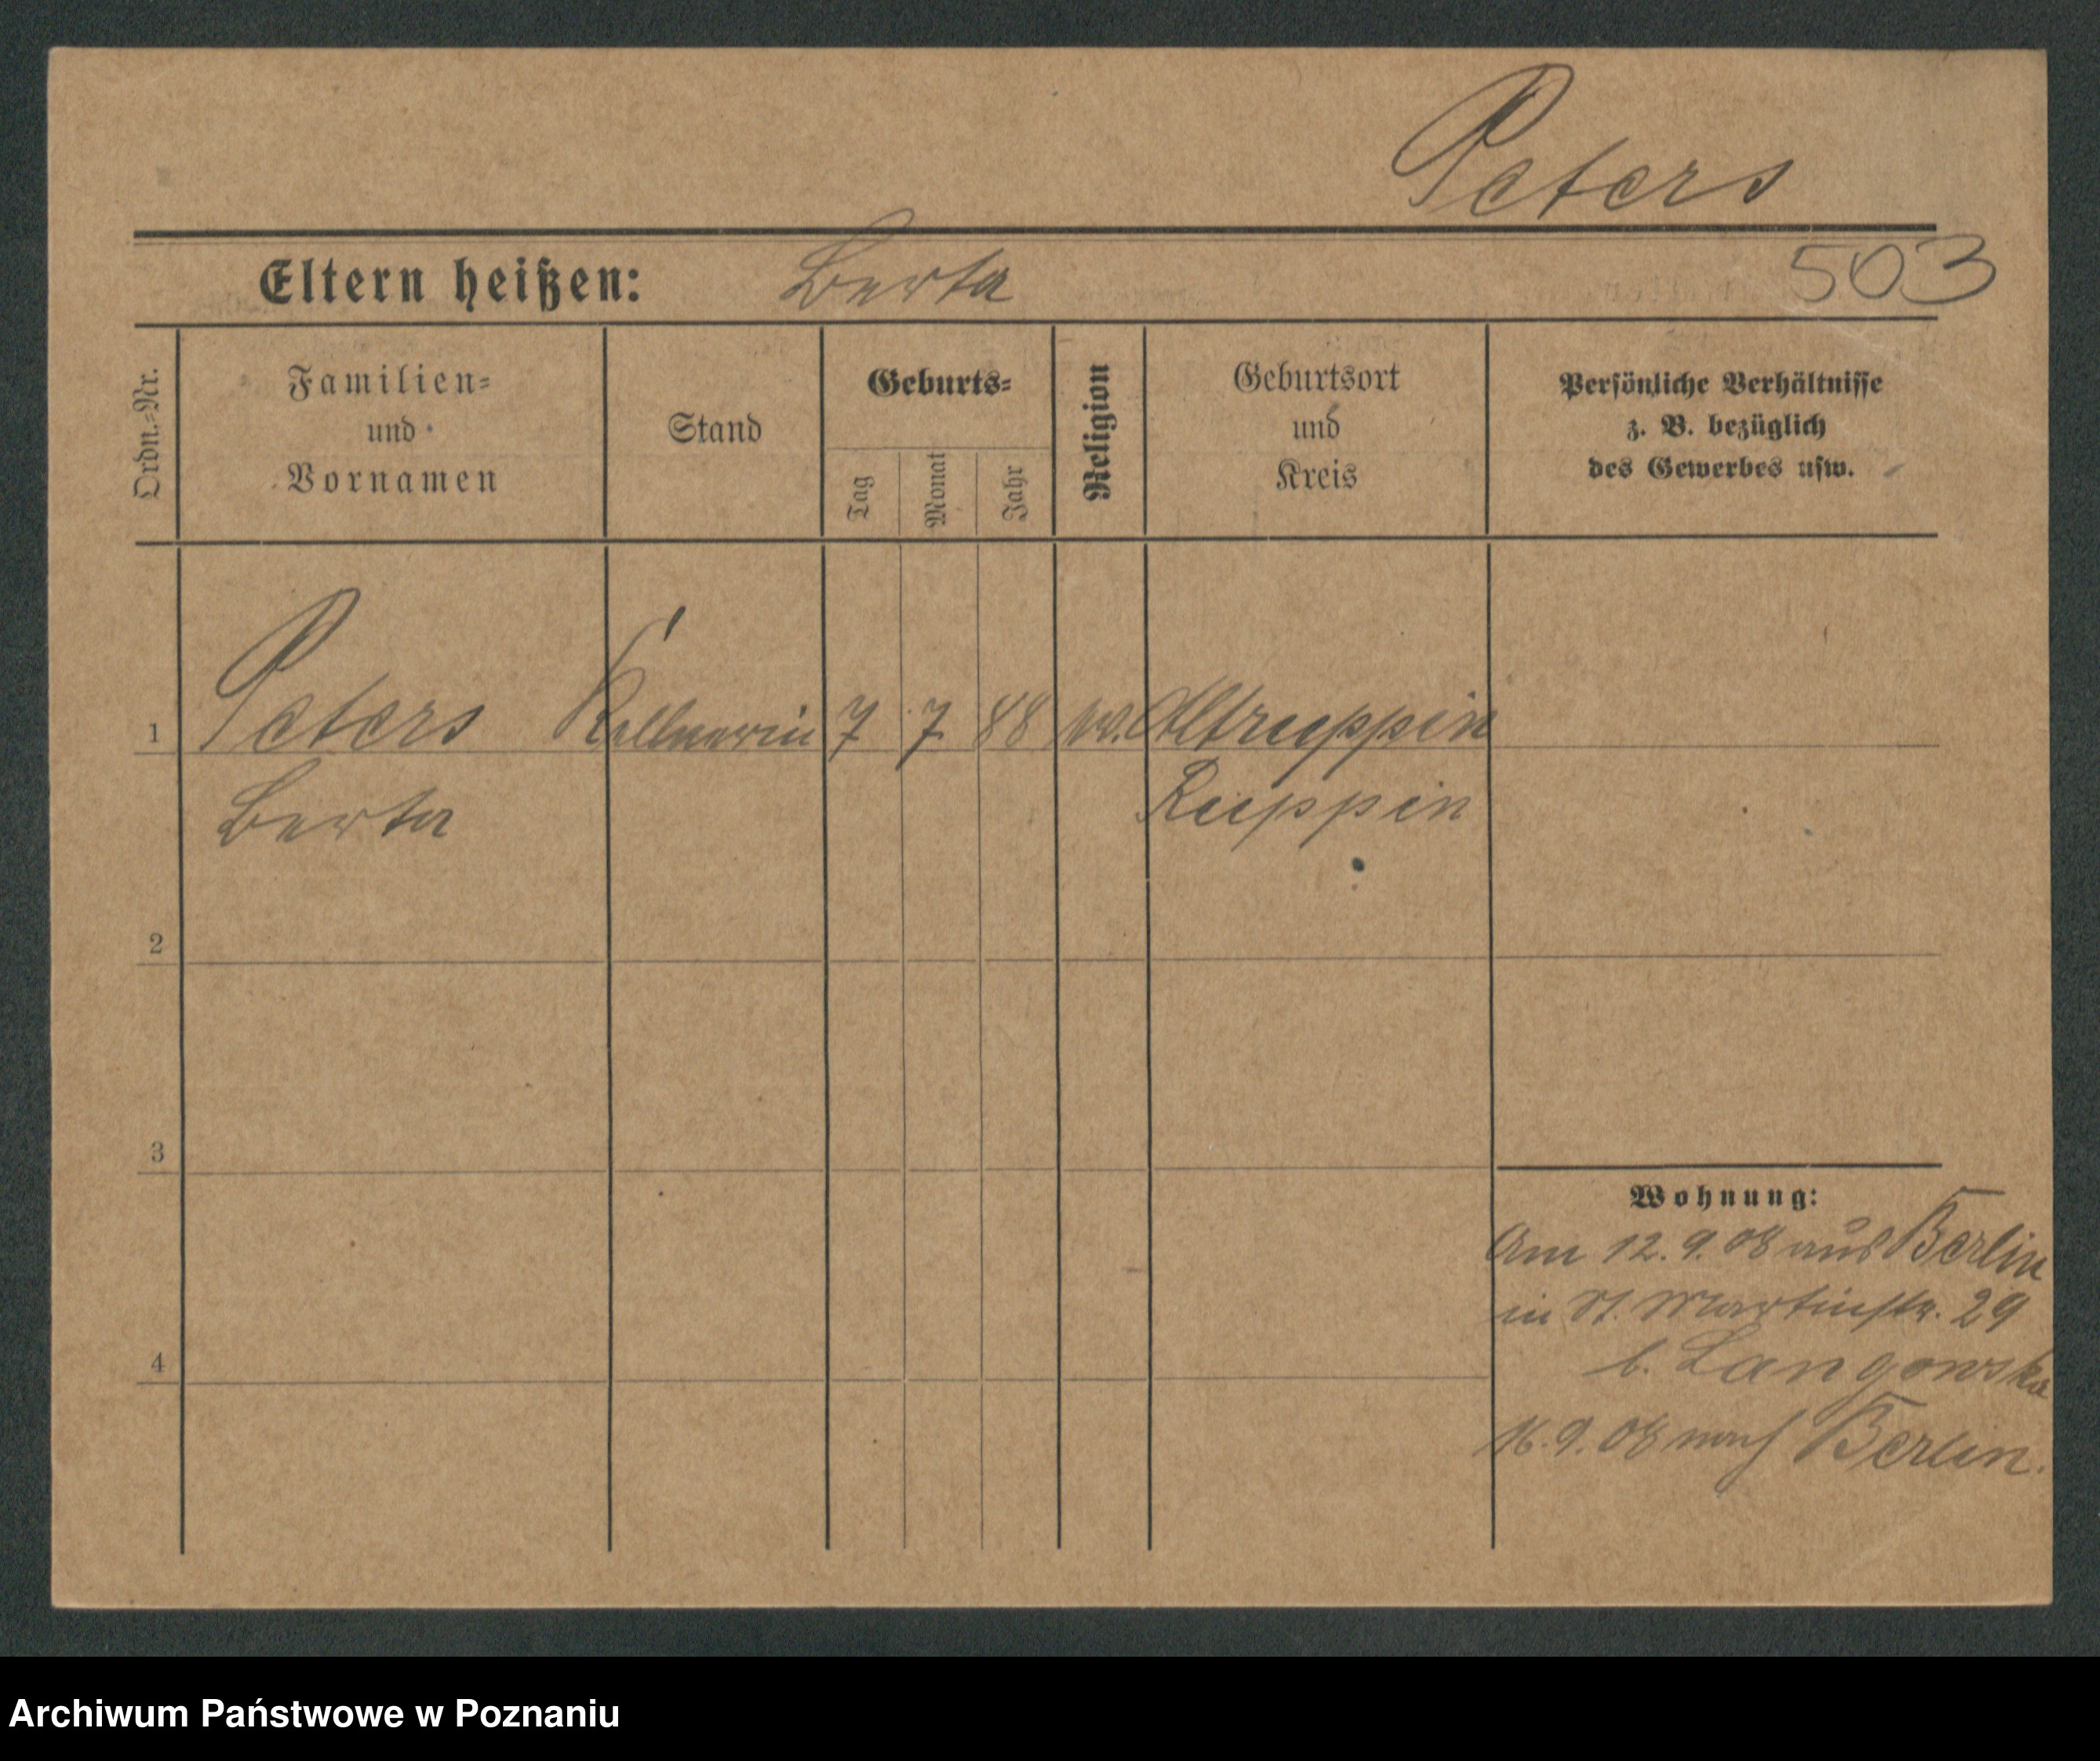 Peters
Eltern heißen: Berta 503
Ordn.-Nr.
Familien-
und
Vornamen
Stand
Geburts-
Tag
Monat
Jahr
Religion
Geburtsort
und
Kreis
Persönliche Verhältnisse
z. B. bezüglich
des Gewerbes usw.
1 Peters Kellnerin 7 7 88 Altruppin
Berta Ruppin
2
3
4
Wohnung:
Am 12. 9. 08 aus Berlin
in St. Martinstr. 29
b. Langowska
16. 9. 08 nach Berlin.
Archiwum Państwowe w Poznaniu